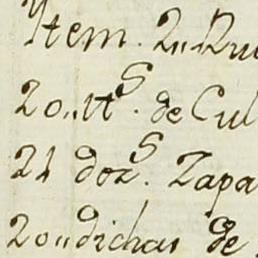 Ytem. 2,, Du
20,, tt^s. de Cul
21 doz^s. Zapa
20,, dichas de